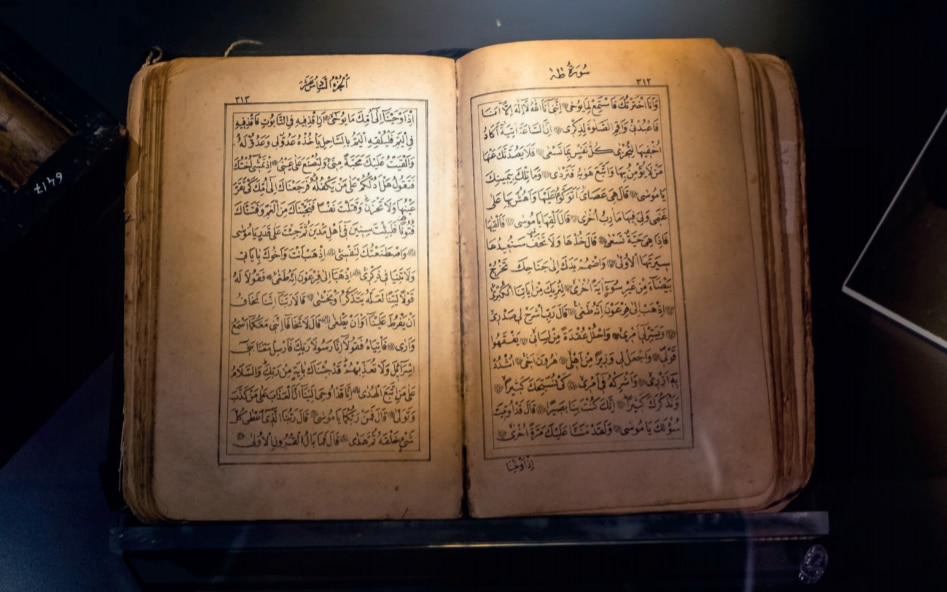 سُورَةُ طٰهٰ
٣١٢
وَاَنَا اخْتَرْتُكَ فَاسْتَمِعْ لِمَا يُوحٰى اِنَّنِى اَنَا اللّٰهُ لَا اِلٰهَ اِلَّا اَنَا
فَاعْبُدْنِى وَاَقِمِ الصَّلٰوةَ لِذِكْرِى اِنَّ السَّاعَةَ اٰتِيَةٌ اَكَادُ
اُخْفِيهَا لِتُجْزٰى كُلُّ نَفْسٍ بِمَا تَسْعٰى فَلَا يَصُدَّنَّكَ عَنْهَا
مَنْ لَا يُؤْمِنُ بِهَا وَاتَّبَعَ هَوٰيهُ فَتَرْدٰى وَمَا تِلْكَ بِيَمِينِكَ
يَا مُوسٰى قَالَ هِىَ عَصَاىَ اَتَوَكَّؤُا عَلَيْهَا وَاَهُشُّ بِهَا عَلٰى
غَنَمِى وَلِىَ فِيهَا مَاٰرِبُ اُخْرٰى قَالَ اَلْقِهَا يَا مُوسٰى فَاَلْقٰيهَا
فَاِذَا هِىَ حَيَّةٌ تَسْعٰى قَالَ خُذْهَا وَلَا تَخَفْ سَنُعِيدُهَا
سِيرَتَهَا الْاُولٰى وَاضْمُمْ يَدَكَ اِلٰى جَنَاحِكَ تَخْرُجْ
بَيْضَاءَ مِنْ غَيْرِ سُوءٍ اٰيَةً اُخْرٰى لِنُرِيَكَ مِنْ اٰيَاتِنَا الْكُبْرٰى
اِذْهَبْ اِلٰى فِرْعَوْنَ اِنَّهُ طَغٰى قَالَ رَبِّ اشْرَحْ لِى صَدْرِى
وَيَسِّرْ لِى اَمْرِى وَاحْلُلْ عُقْدَةً مِنْ لِسَانِى يَفْقَهُوا
قَوْلِى وَاجْعَلْ لِى وَزِيرًا مِنْ اَهْلِى هٰرُونَ اَخِى اُشْدُدْ
بِهِ اَزْرِى وَاَشْرِكْهُ فِى اَمْرِى كَىْ نُسَبِّحَكَ كَثِيرًا
وَنَذْكُرَكَ كَثِيرًا اِنَّكَ كُنْتَ بِنَا بَصِيرًا قَالَ قَدْ اُوتِيتَ
سُؤْلَكَ يَا مُوسٰى وَلَقَدْ مَنَنَّا عَلَيْكَ مَرَّةً اُخْرٰى
اِذْ اَوْحَيْنَا
اَلْجُزْءُ السَّادِسَ عَشَرَ
٣١٣
اِذْ اَوْحَيْنَا اِلٰى اُمِّكَ مَا يُوحٰى اَنِ اقْذِفِيهِ فِى التَّابُوتِ فَاقْذِفِيهِ
فِى الْيَمِّ فَلْيُلْقِهِ الْيَمُّ بِالسَّاحِلِ يَاْخُذْهُ عَدُوٌّ لِى وَعَدُوٌّ لَهُ
وَاَلْقَيْتُ عَلَيْكَ مَحَبَّةً مِنِّى وَلِتُصْنَعَ عَلٰى عَيْنِى اِذْ تَمْشِى اُخْتُكَ
فَتَقُولُ هَلْ اَدُلُّكُمْ عَلٰى مَنْ يَكْفُلُهُ فَرَجَعْنَاكَ اِلٰى اُمِّكَ كَىْ تَقَرَّ
عَيْنُهَا وَلَا تَحْزَنَ وَقَتَلْتَ نَفْسًا فَنَجَّيْنَاكَ مِنَ الْغَمِّ وَفَتَنَّاكَ
فُتُونًا فَلَبِثْتَ سِنِينَ فِى اَهْلِ مَدْيَنَ ثُمَّ جِئْتَ عَلٰى قَدَرٍ يَا مُوسٰى
وَاصْطَنَعْتُكَ لِنَفْسِى اِذْهَبْ اَنْتَ وَاَخُوكَ بِاٰيَاتِى
وَلَا تَنِيَا فِى ذِكْرِى اِذْهَبَا اِلٰى فِرْعَوْنَ اِنَّهُ طَغٰى فَقُولَا لَهُ
قَوْلًا لَيِّنًا لَعَلَّهُ يَتَذَكَّرُ اَوْ يَخْشٰى قَالَا رَبَّنَا اِنَّنَا نَخَافُ
اَنْ يَفْرُطَ عَلَيْنَا اَوْ اَنْ يَطْغٰى قَالَ لَا تَخَافَا اِنَّنِى مَعَكُمَا اَسْمَعُ
وَاَرٰى فَاْتِيَاهُ فَقُولَا اِنَّا رَسُولَا رَبِّكَ فَاَرْسِلْ مَعَنَا بَنِى
اِسْرَائِلَ وَلَا تُعَذِّبْهُمْ قَدْ جِئْنَاكَ بِاٰيَةٍ مِنْ رَبِّكَ وَالسَّلَامُ
عَلٰى مَنِ اتَّبَعَ الْهُدٰى اِنَّا قَدْ اُوحِىَ اِلَيْنَا اَنَّ الْعَذَابَ عَلٰى مَنْ كَذَّبَ
وَتَوَلّٰى قَالَ فَمَنْ رَبُّكُمَا يَا مُوسٰى قَالَ رَبُّنَا الَّذِى اَعْطٰى كُلَّ
شَىْءٍ خَلْقَهُ ثُمَّ هَدٰى قَالَ فَمَا بَالُ الْقُرُونِ الْاُولٰى
6447